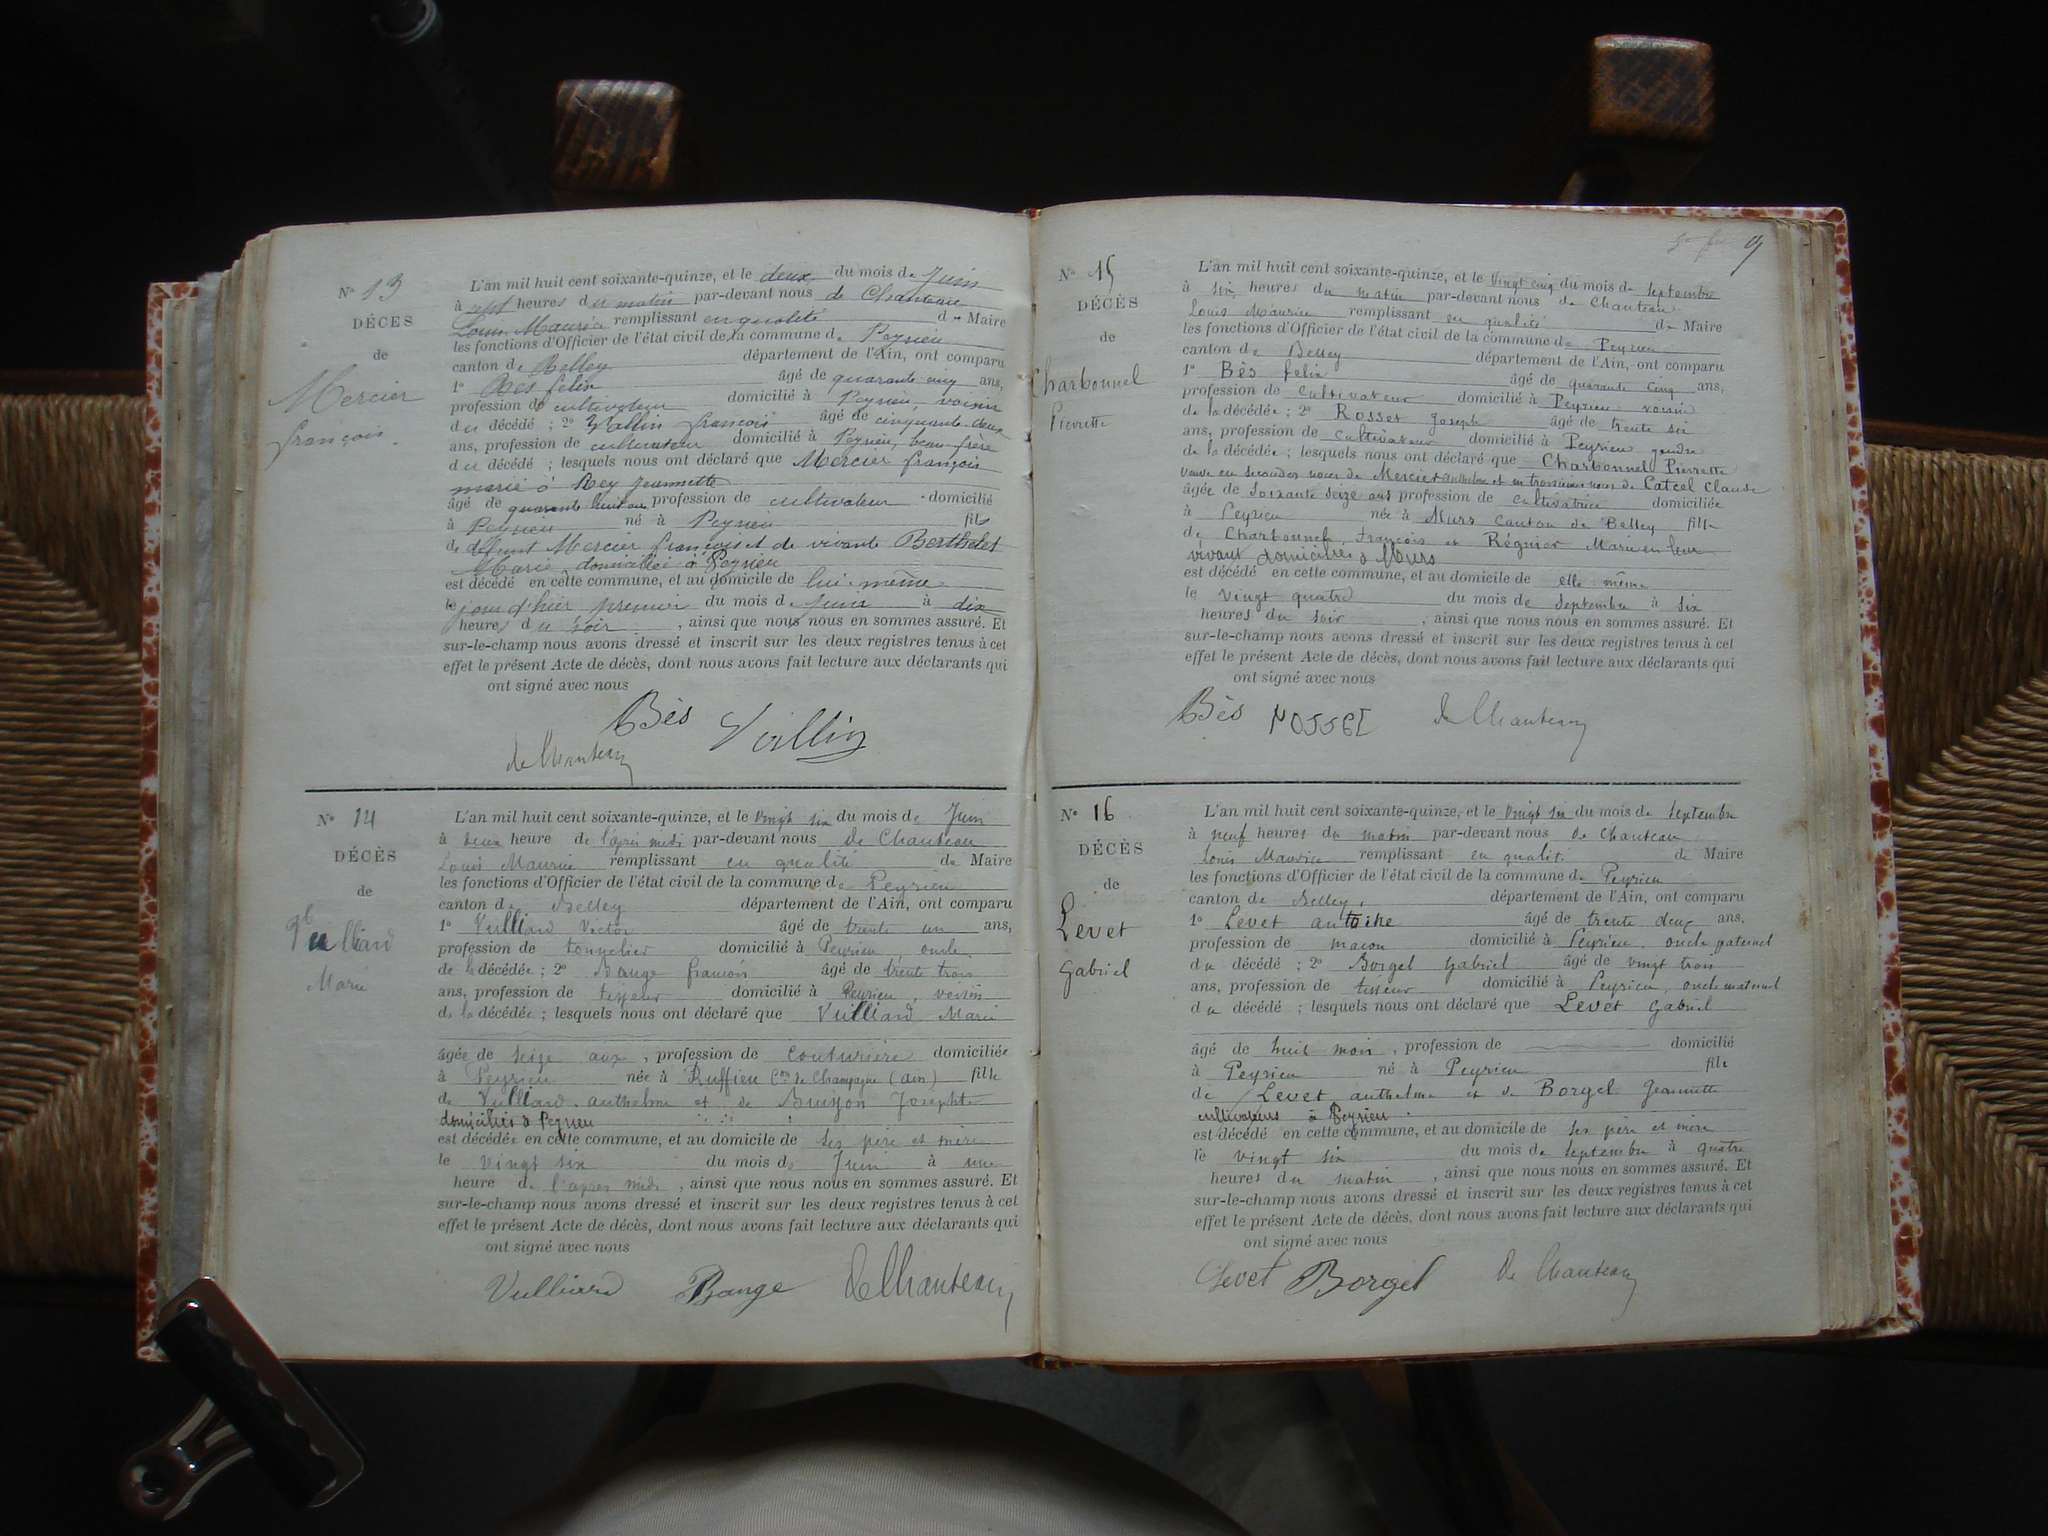 N° 13
DÉCES
de
Mercier
françois
L'an mil huit cent soixante-quinze, et le deux du mois de Juin
à sept heures du matin par-devant nous de Chanteau
Louis Maurice remplissant en qualité de Maire
les fonctions d'Officier de l'état civil de la commune de Peyrieu
canton de Belley département de l'Ain, ont comparu
1° Bès felix âgé de quarante cinq ans,
profession de cultivateur domicilié à Peyrieu, voisin
du décédé ; 2° Vallin françois âgé de cinquante deux
ans, profession de cultivateur domicilié à Peyrieu, beau-frère
du décédé ; lesquels nous ont déclaré que Mercier françois
marié à Rey Jeannette
âgé de quarante huit ans profession de cultivateur domicilié
à Peyrieu né à Peyrieu fils
de défunt Mercier françois et de vivante Berthelet
Marie, domiciliée à Peyrieu
est décédé en cette commune, et au domicile de lui-même
le jour d'hier premier du mois de Juin à dix
heures du soir, ainsi que nous nous en sommes assuré. Et
sur-le-champ nous avons dressé et inscrit sur les deux registres tenus à cet
effet le présent Acte de décès, dont nous avons fait lecture aux déclarants qui
ont signé avec nous
Bès Vallin
de Chanteau
N° 14
DÉCÈS
de
Vulliard
Marie
L'an mil huit cent soixante-quinze, et le vingt six du mois de Juin
à deux heure de l'après midi par-devant nous de Chanteau
Louis Maurice remplissant en qualité de Maire
les fonctions d'Officier de l'état civil de la commune de Peyrieu
canton de Belley département de l'Ain, ont comparu
1° Vulliard Victor âgé de trente un ans,
profession de tonnelier domicilié à Peyrieu oncle
de la décédée ; 2° Bange françois âgé de trente trois
ans, profession de tisseur domicilié à Peyrieu, voisin
de la décédée ; lesquels nous ont déclaré que Vulliard Marie
âgée de seize ans, profession de couturière domiciliée
à Peyrieu née à Ruffieu Con de Champagne (ain) fille
de Vulliard anthelme et de Joséphte
domiciliés à Peyrieu
est décédée en cette commune, et au domicile de ses père et mère
le vingt six du mois de Juin à une
heure de l'après midi, ainsi que nous nous en sommes assuré. Et
sur-le-champ nous avons dressé et inscrit sur les deux registres tenus à cet
effet le présent Acte de décès, dont nous avons fait lecture aux déclarants qui
ont signé avec nous
Vulliard Bange de Chanteau
9
N° 15
DÉCÈS
de
Charbonnel
Pierrette
L'an mil huit cent soixante-quinze, et le vingt cinq du mois de septembre
à six heures du matin par-devant nous de Chanteau
Louis Maurice remplissant en qualité de Maire
les fonctions d'Officier de l'état civil de la commune de Peyrieu
canton de Belley département de l'Ain, ont comparu
1° Bès felix âgé de quarante cinq ans,
profession de cultivateur domicilié à Peyrieu voisin
de la décédée ; 2° Rosset Joseph âgé de trente six
ans, profession de cultivateur domicilié à Peyrieu gendre
de la décédée ; lesquels nous ont déclaré que Charbonnel Pierrette
veuve en secondes noces de Mercier anthelme et en troisièmes noces de Catcel Claude
âgée de soixante seize ans profession de cultivatrice domiciliée
à Peyrieu née à Murs canton de Belley fille
de Charbonnel François et Régnier Marie en leur
vivant domiciliés à Murs
est décédé en cette commune, et au domicile de elle même
le vingt quatre du mois de septembre à six
heures du soir, ainsi que nous nous en sommes assuré. Et
sur-le-champ nous avons dressé et inscrit sur les deux registres tenus à cet
effet le présent Acte de décès, dont nous avons fait lecture aux déclarants qui
ont signé avec nous
Bès ROSSET de Chanteau
N° 16
DÉCÈS
de
Levet
Gabriel
L'an mil huit cent soixante-quinze, et le vingt six du mois de septembre
à neuf heures du matin par-devant nous de Chanteau
Louis Maurice remplissant en qualité de Maire
les fonctions d'Officier de l'état civil de la commune de Peyrieu
canton de Belley, département de l'Ain, ont comparu
1° Levet antoine âgé de trente deux ans,
profession de maçon domicilié à Peyrieu. oncle paternel
du décédé ; 2° Borgel Gabriel âgé de vingt trois
ans, profession de tisseur domicilié à Peyrieu, oncle maternel
du décédé ; lesquels nous ont déclaré que Levet Gabriel
âgé de huit mois, profession de domicilié
à Peyrieu né à Peyrieu fils
de Levet anthelme et de Borgel Jeannette
cultivateurs à Peyrieu
est décédé en cette commune, et au domicile de ses père et mère
le vingt six du mois de septembre à quatre
heures du matin, ainsi que nous nous en sommes assuré. Et
sur-le-champ nous avons dressé et inscrit sur les deux registres tenus à cet
effet le présent Acte de décès, dont nous avons fait lecture aux déclarants qui
ont signé avec nous
Levet Borgel de Chanteau